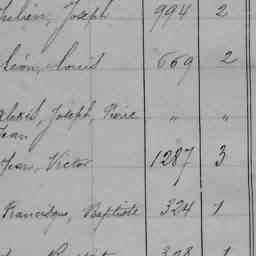 Julien, Joseph 994 2
Léon, Louis 669 2
Alexis, Joseph, Pierre " "
Jean
Jean, Victor 1287 3
Francisque, Baptiste 324 1